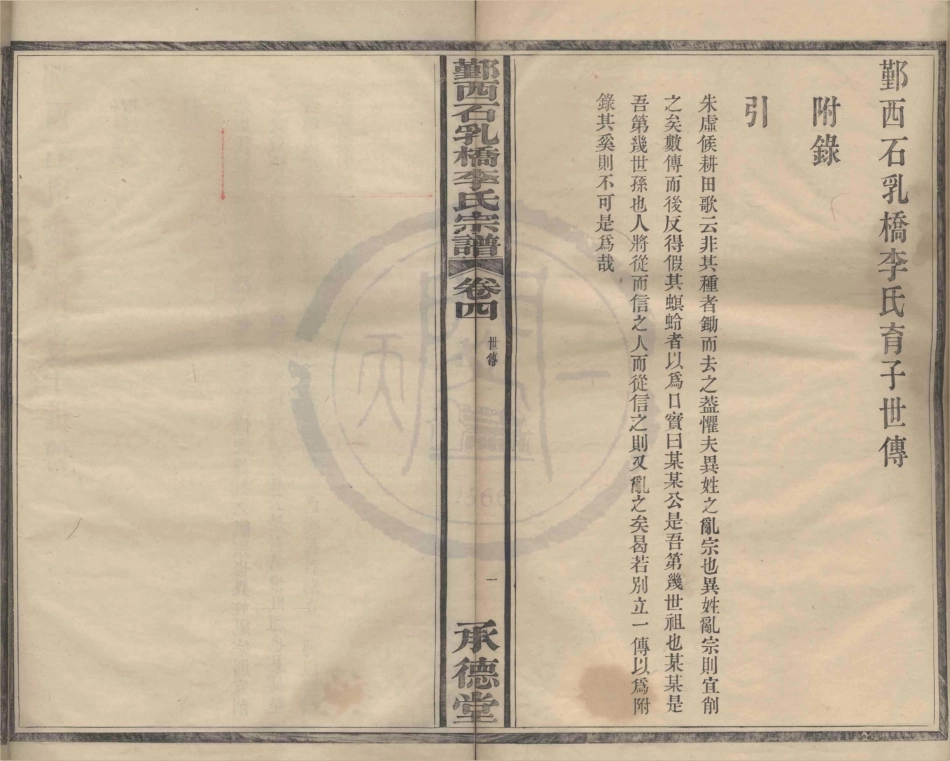 鄞西石乳橋李氏育子世傳
附錄
引
朱虛候耕田歌云非其種者鋤而去之葢懼夫異姓之亂宗也異姓亂宗則宜削
之矣數傳而後反得假其螟蛉者以爲口實曰某某公是吾第幾世祖也某某是
吾第幾世孫也人將從而信之人而從信之則又亂之矣曷若別立一傳以爲附
錄其奚則不可是爲哉
鄞西石乳橋李氏宗譜 卷四 世傳 一 承德堂